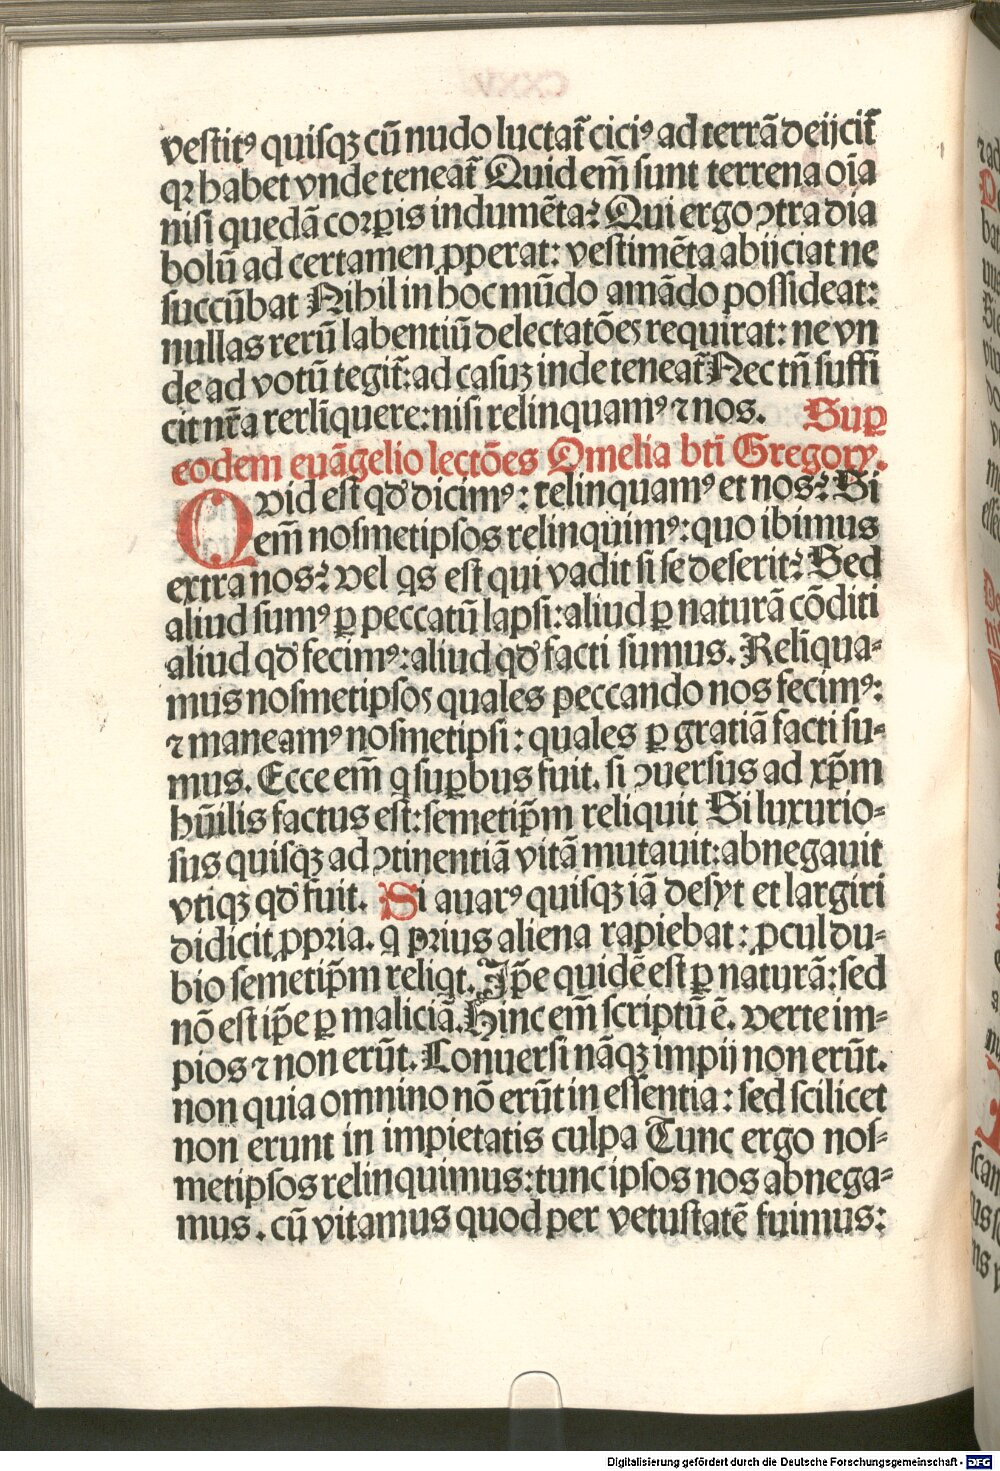 vestitꝰ quisqꝫ cū nudo luctat̄ ciciꝰ ad terrā deijcit̄
qꝛ habet vnde teneat̄ Quid em̄ sunt terrena oīa
nisi quedā corꝑis indumēta? Qui ergo ↄtra dia
bolū ad certamen ꝓperat: vestimēta abijciat ne
succūbat Nihil in hoc mūdo amādo possideat:
nullas rerū labentiū delectatōes requirat: ne vn
de ad votū tegit̄: ad casuꝫ inde teneat̄ Nec tn̄ suffi
cit nr̄a rerlīquere: nisi relinquamꝰ ⁊ nos. Suꝑ
eodem euāgelio lectōes Omelia bti̅ Gregory.
Qvid est qd̓ dicimꝰ: relinquamꝰ et nos? Si
em̄ nosmetipsos relinquimꝰ: quo ibimus
extra nos? vel qs est qui vadit si se deserit? Sed
aliud sumꝰ ꝑ peccatū lapsi: aliud ꝑ naturā cōditi
aliud qd̓ fecimꝰ: aliud qd̓ facti sumus. Relīqua-
mus nosmetipsos quales peccando nos fecimꝰ:
⁊ maneamꝰ nosmetipsi: quales ꝑ gratiā facti su-
mus. Ecce em̄ q suꝑbus fuit. si ↄuersus ad xp̄m
hūilis factus est: semetip̄m reliquit Si luxurio-
sus quisqꝫ ad ↄtinentiā vitā mutauit: abnegauit
vtiqꝫ qd̓ fuit. Si auarꝰ quisqꝫ iā desyt et largiri
didicit ꝓpria. q prius aliena rapiebat: ꝓcul du-
bio semetip̄m reliqt. Ip̄e quidē est ꝑ naturā: sed
nō est ip̄e ꝑ maliciā. Hinc em̄ scriptū ē. verte im-
pios ⁊ non erūt. Conuersi nāqꝫ impij non erūt.
non quia omnino nō erūt in essentia: sed scilicet
non erunt in impietatis culpa Tunc ergo nos-
metipsos relinquimus: tunc ipsos nos abnega-
mus. cū vitamus quod per vetustatē fuimus:
Digitalisierung gefördert durch die Deutsche Forschungsgemeinschaft - DFG